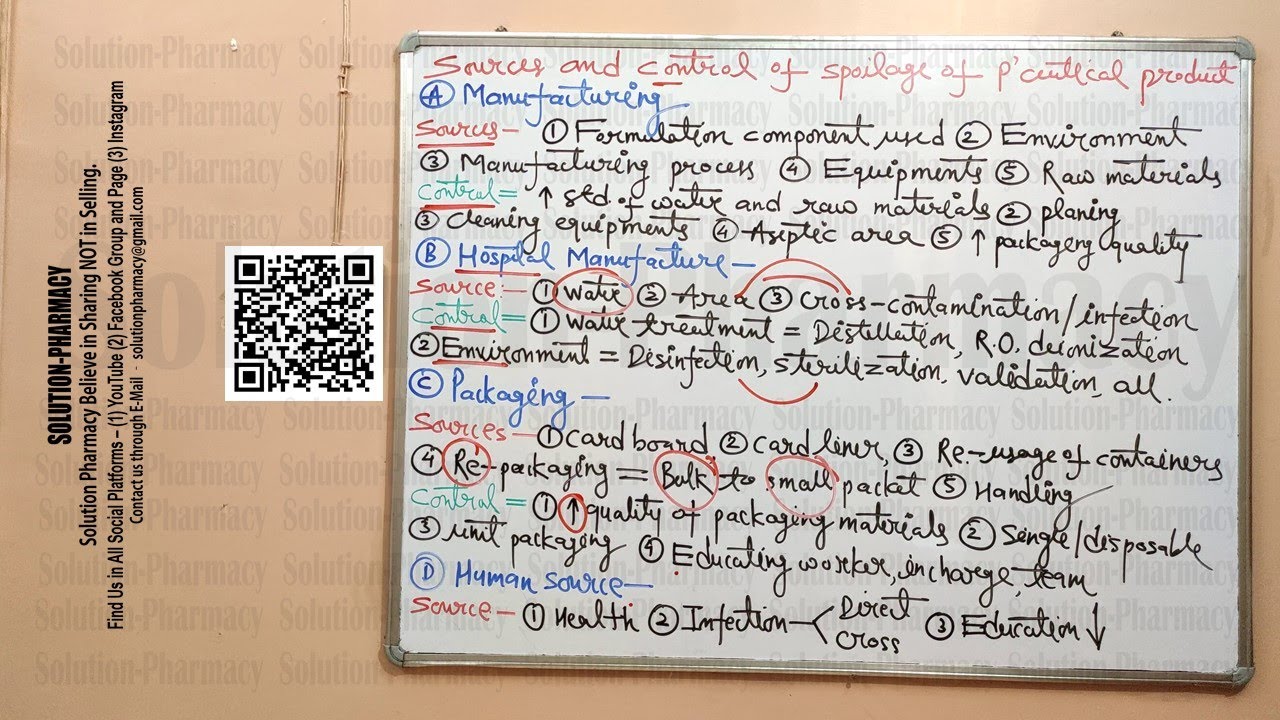 SOLUTION-PHARMACY
Solution Pharmacy Believe in Sharing NOT in Selling.
Find Us in All Social Platforms – (1) YouTube (2) Facebook Group and Page (3) Instagram
Contact us through E-Mail - solutionpharmacy@gmail.com
Sources and control of spoilage of p'ceutical product
Ⓐ Manufacturing
Sources- ① Formulation component used ② Environment
③ Manufacturing process ④ Equipments ⑤ Raw materials
Control= ↑ std. of water and raw materials ② planing
③ Cleaning equipments ④ Aseptic area ⑤ ↑ packageng quality
Ⓑ Hospital Manufacture –
Source:- ① Water ② Area ③ Cross-contamination/infection
Control= ① Water treatment = Distillation, R.O. deionization
② Environment = Disinfection, sterilization, validation, all.
Ⓒ Packaging –
Sources – ① Card board, ② Card liner, ③ Re-usage of containers
④ Re-packaging = Bulk to small packet ⑤ Handling
Control = ① ↑ quality of packageing materials ② Single/disposable
③ unit packaging ④ Educating worker, incharge, team
Ⓓ Human source –
Source – ① Health ② Infection –< Direct
Cross
③ Education ↓
Solution-Pharmacy